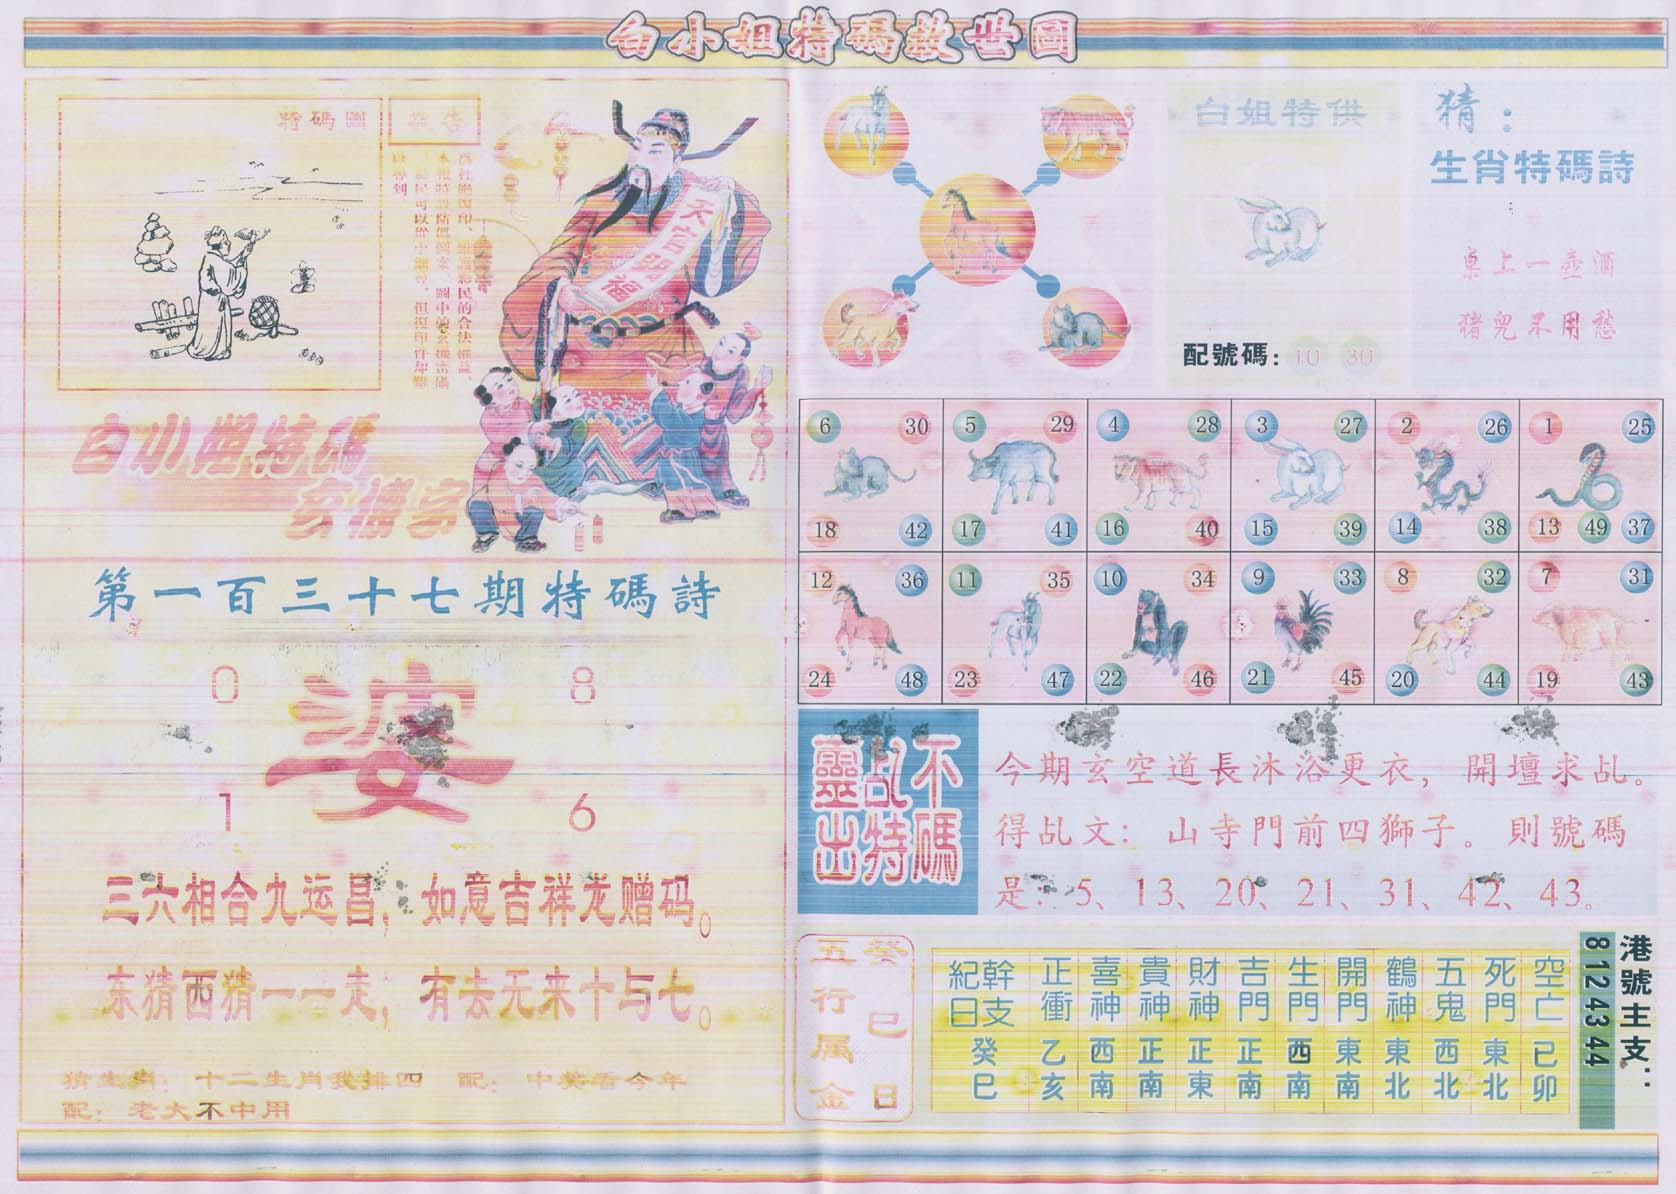 白小姐特碼救世圖
特碼圖
敬告
天官賜福
白小姐特碼
玄機字
第一百三十七期特碼詩
0 8
婆
1 6
三六相合九运昌；如意吉祥龙赠码。
东猜西猜一一走；有去无来十与七。
猜生肖：十二生肖我排四 配：中奖看今年
配：老大不中用
白姐特供
配號碼：10 30
猜：
生肖特碼詩
桌上一壺酒
猪兒不用愁
6 30 5 29 4 28 3 27 2 26 1 25
18 42 17 41 16 40 15 39 14 38 13 49 37
12 36 11 35 10 34 9 33 8 32 7 31
24 48 23 47 22 46 21 45 20 44 19 43
靈乩不
出特碼
今期玄空道長沐浴更衣，開壇求乩。
得乩文：山寺門前四獅子。則號碼
是：5、13、20、21、31、42、43。
癸巳日
五行属金
紀日 幹支 正衝 喜神 貴神 財神 吉門 生門 開門 鶴神 五鬼 死門 空亡
癸巳 乙亥 西南 正南 正東 正南 西南 東南 東北 西北 東北 已卯
港號主支：
8 12 43 44